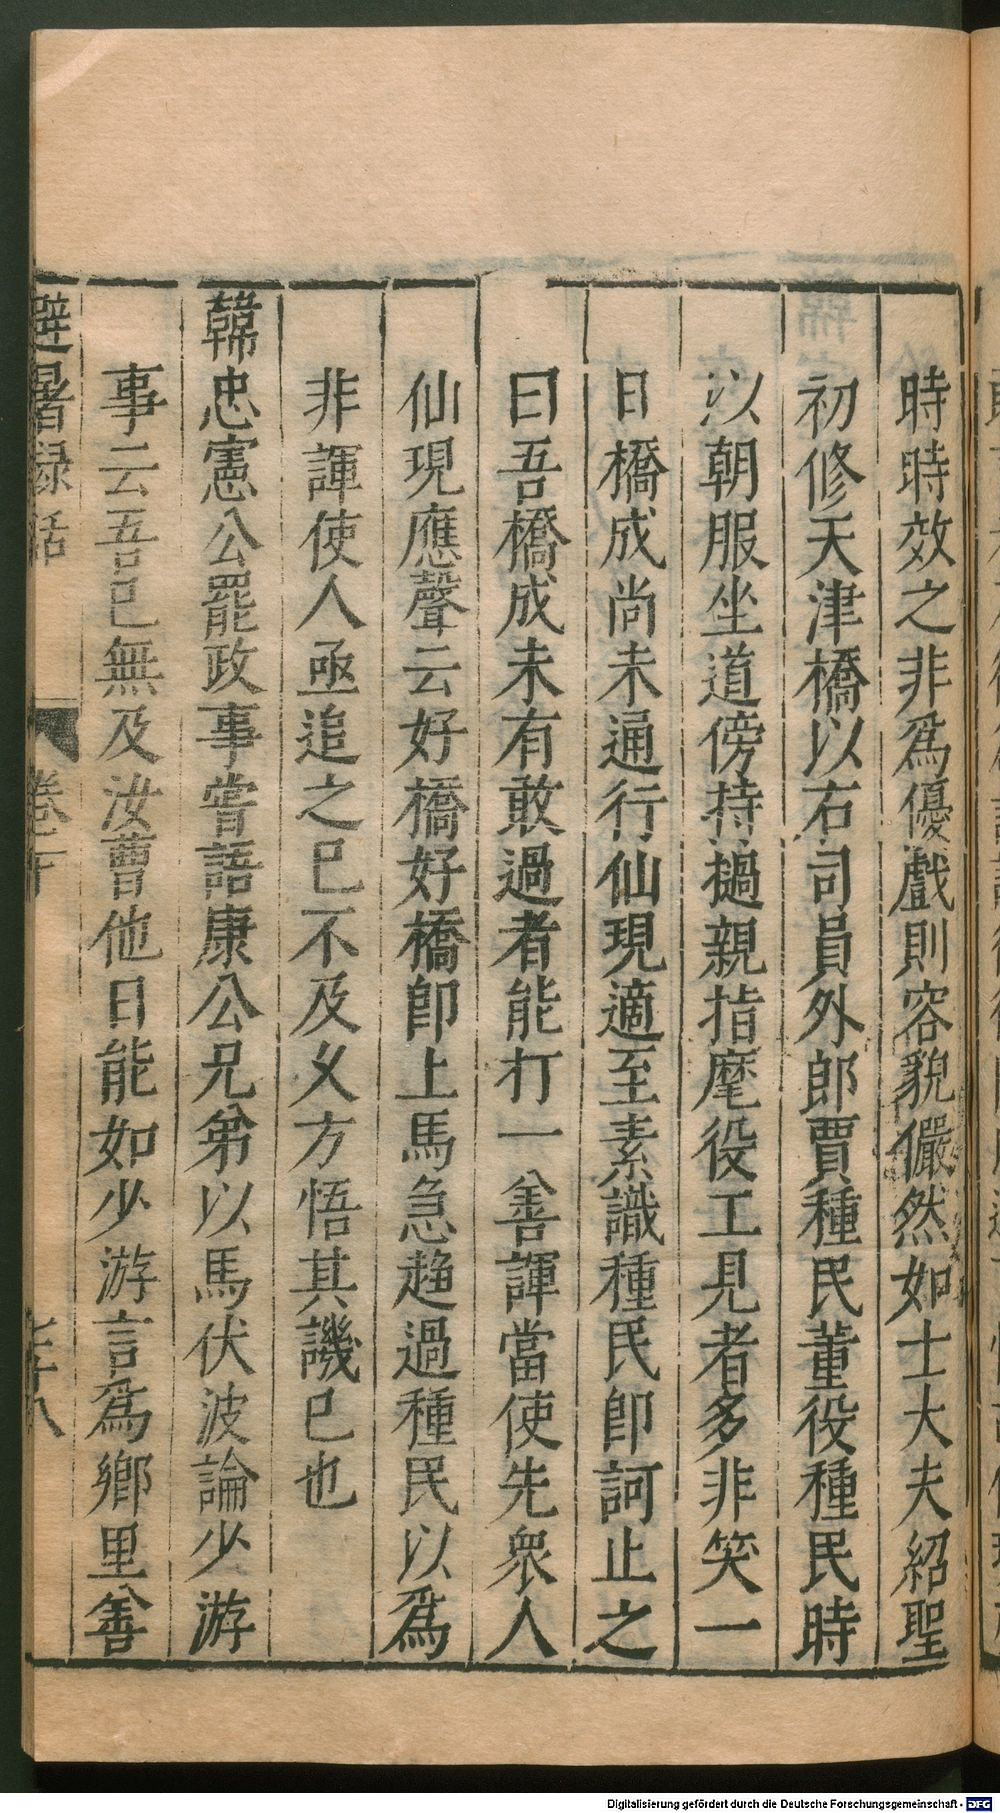 時時效之非爲優戲則容貌儼然如士大夫紹聖
初修天津橋以右司員外郎賈種民董役種民時
以朝服坐道傍持撾親指麾役工見者多非笑一
日橋成尚未通行仙現適至素識種民卽訶止之
曰吾橋成未有敢過者能打一善諢當使先衆人
仙現應聲云好橋好橋卽上馬急趨過種民以爲
非諢使人亟追之已不及乆方悟其譏已也
韓忠憲公罷政事嘗語康公兄弟以馬伏波論少游
事云吾已無及汝曹他日能如少游言爲鄉里善
避暑録話 卷下
Digitalisierung gefördert durch die Deutsche Forschungsgemeinschaft - DFG